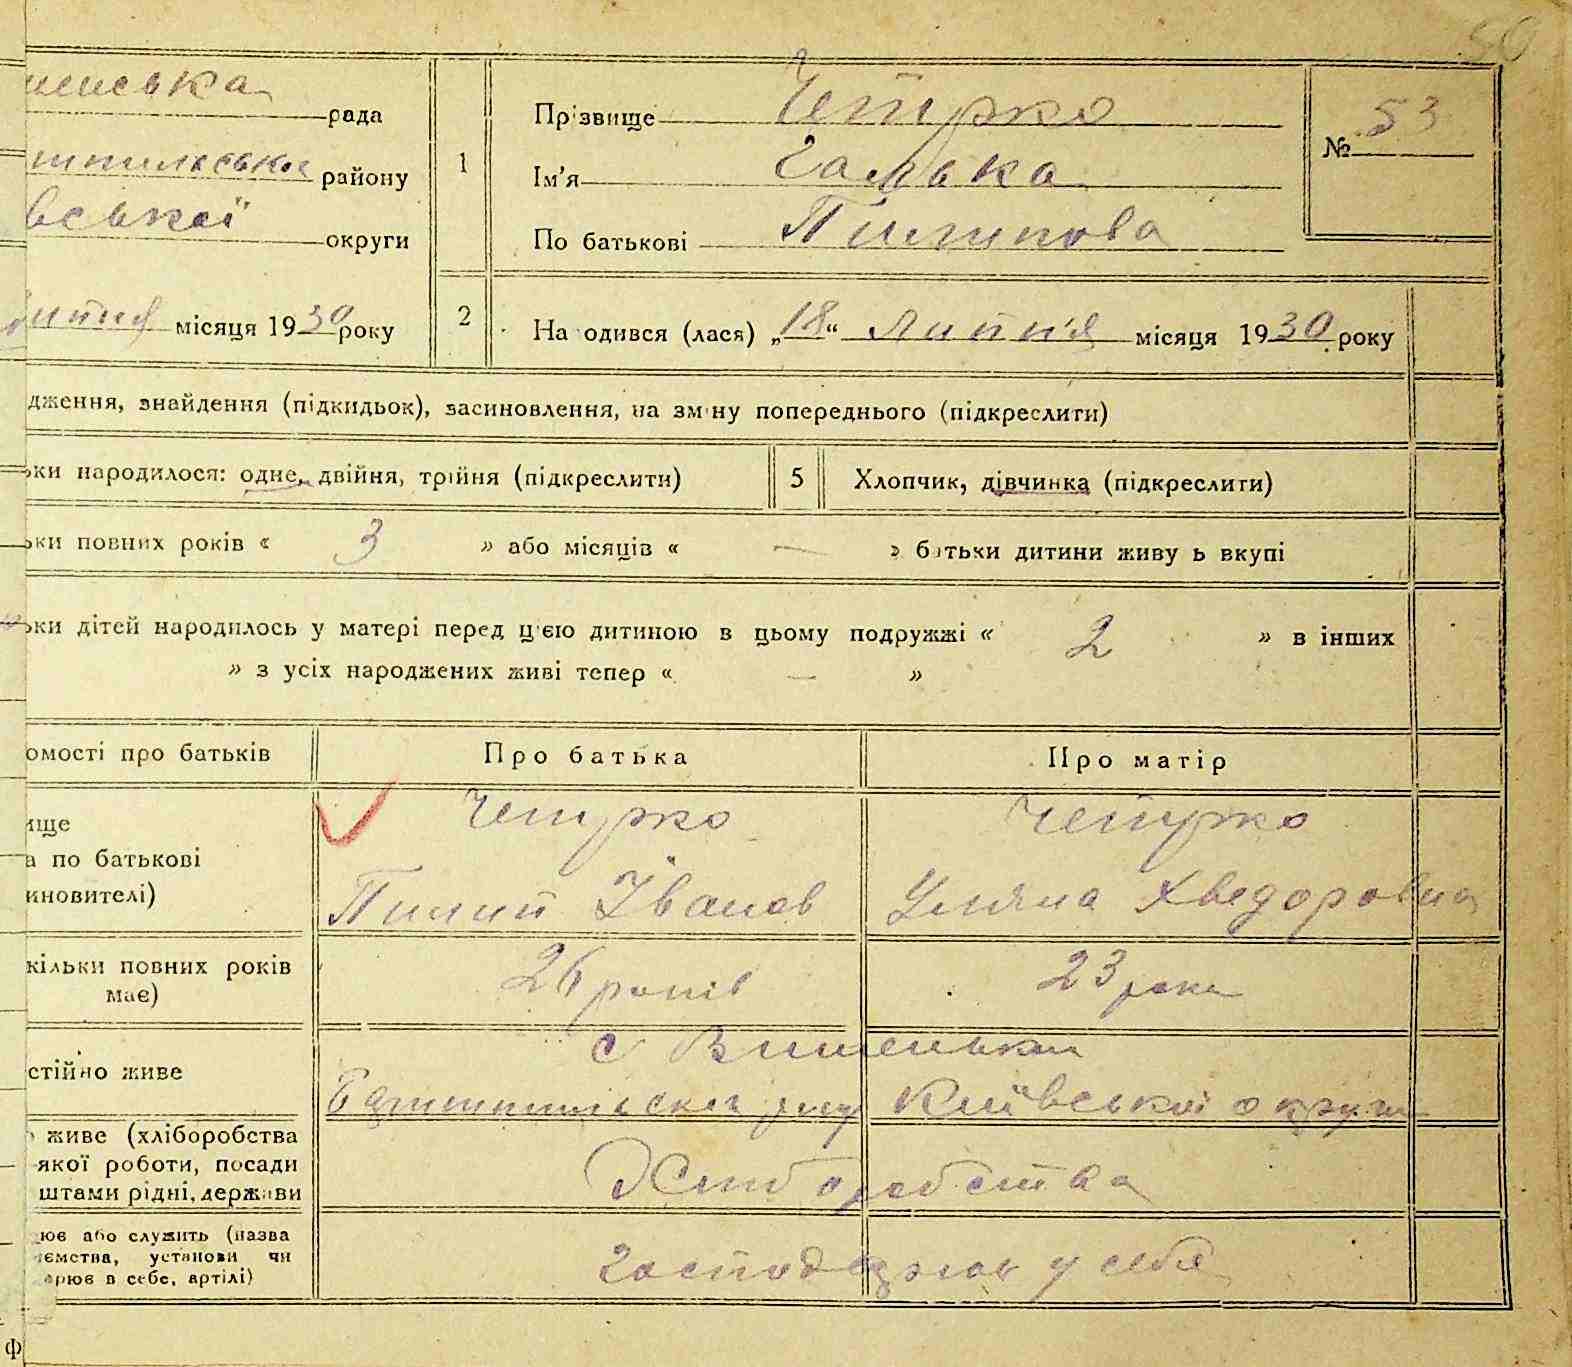 50
шенська рада
Прізвище Чепурко
№ 53
1
шпільська району
Ім'я Галька
вської округи
По батькові Пилипова
липня місяця 1930 року
2
Народився (лася) „18“ Липп'я місяця 1930 року
дження, знайдення (підкидьок), засиновлення, на зміну попереднього (підкреслити)
ьки народилося: одне, двійня, трійня (підкреслити)
5
Хлопчик, дівчинка (підкреслити)
ьки повних років « 3 » або місяців « — » батьки дитини живуть вкупі
ьки дітей народилось у матері перед цією дитиною в цьому подружжі « 2 » в інших
» з усіх народжених живі тепер « — »
омості про батьків
Про батька
Про матір
ище
а по батькові
иновителі)
Чепурко
Пилип Іванов
Чепурко
Уляна Хведоровна
кільки повних років
має)
26 років
23 роки
стійно живе
с Вишеньки
Бориспільської р-ну Київської округи
живе (хліборобства
якої роботи, посади
штами рідні, держави
Хліборобства
ює або служить (назва
ємства, установи чи
арює в себе, артілі)
господарює у себя
Ф